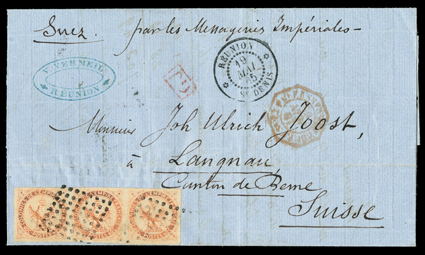 Suez. par les Messageries Impériales
REUNION
19
MAI
65
ST DENIS
V. VERMEIL
REUNION
Monsieur Joh Ulrich Joost,
à Langnau
Canton de Berne
Suisse